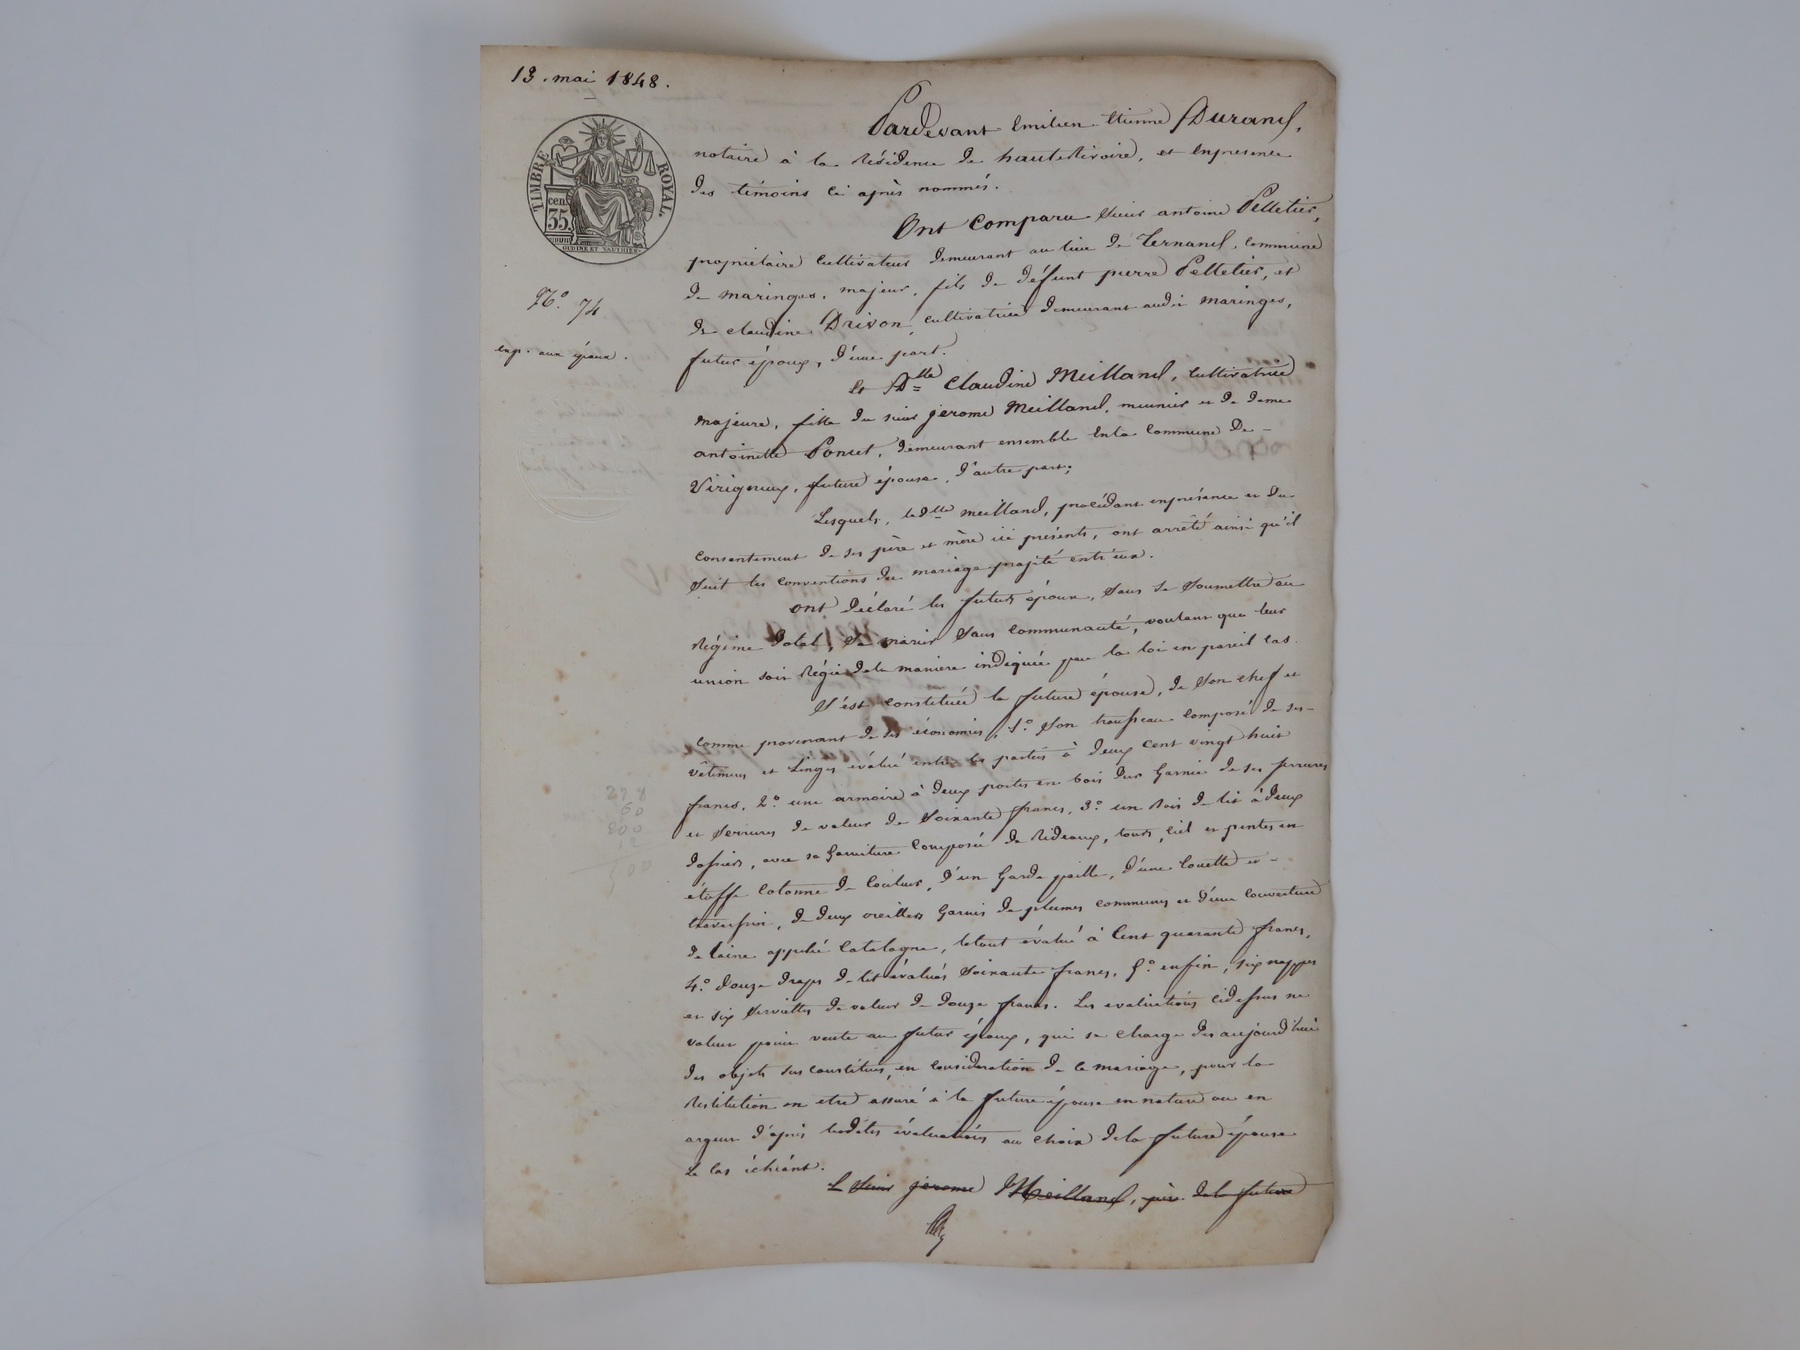 13. mai 1848.
TIMBRE ROYAL.
cen.
35.
OUDINÉ ET VAUTHIER
Pardevant Emilien Etienne Durand,
notaire à la Résidence de hauterivoire, et enpresence
des témoins ci après nommés.
Ont Comparu Sieur antoine Pelletier,
propriétaire cultivateur demeurant au lieu de Ternand, commune
de maringes, majeur, fils de défunt pierre Pelletier, et
N.o 74
de claudine Drivon, cultivatrice demeurant audit maringes,
exp. aux époux.
futur époux, d'une part.
Et Dlle Claudine Meilland, cultivatrice
majeure, fille du sieur jerome Meilland, meunier et de dame
antoinette Poncet, demeurant ensemble enla Commune De-
Virigneux, future épouse, d'autre part;
Lesquels, lad.lle meilland, procédant enprésence et du
consentement de ses père et mère ici présents, ont arrêté ainsi qu'il
Suit les conventions du mariage projeté entr'eux.
ont déclaré les futurs époux, sans se Soumettre au
Régime Dotal, Se marier Sans Communauté, voulant que leur
union soit Régie dela maniere indiquée par la loi en pareil cas.
S'est constituée la future épouse, de Son chef et
Comme provenant de ses économies, 1.o Son trousseau composé de ses-
vêtemens et Linges évalué entre les parties à deux cent vingt huit
francs, 2.o une armoire à deux portes en bois dur Garnie de ses ferrures
et Serrures de valeur de Soixante francs, 3.o un Bois de lit à deux
dossiers, avec sa Garniture Composée de Rideaux, tours, ciel et pentes en
étoffe Cotonne de Couleur, d'un Garde paille, d'une Couette et-
traversin, de deux oreillers Garnis de plumes communes et d'une couverture
de Laine appelée Catalogne, letout évalué à Cent quarante francs,
4.o douze draps de lit évalués Soixante francs, 5.o enfin, six nappes
et six Serviettes de valeur de Douze francs. Les evaluations cidessus ne
valent point vente au futur époux, qui se charge dès aujourd'hui
des objets sus constitués, en Considération de ce mariage, pour la
Restitution en etre assuré à la future épouse en nature ou en
argent d'après lesdites évaluations au choix dela future épouse
Le Cas échéant.
Le Sieur jerome Meilland, père dela future